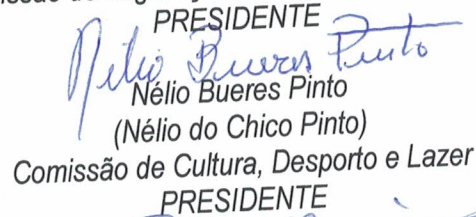 PRESIDENTE
Nélio Bueres Pinto
Nélio Bueres Pinto
(Nélio do Chico Pinto)
Comissão de Cultura, Desporto e Lazer
PRESIDENTE